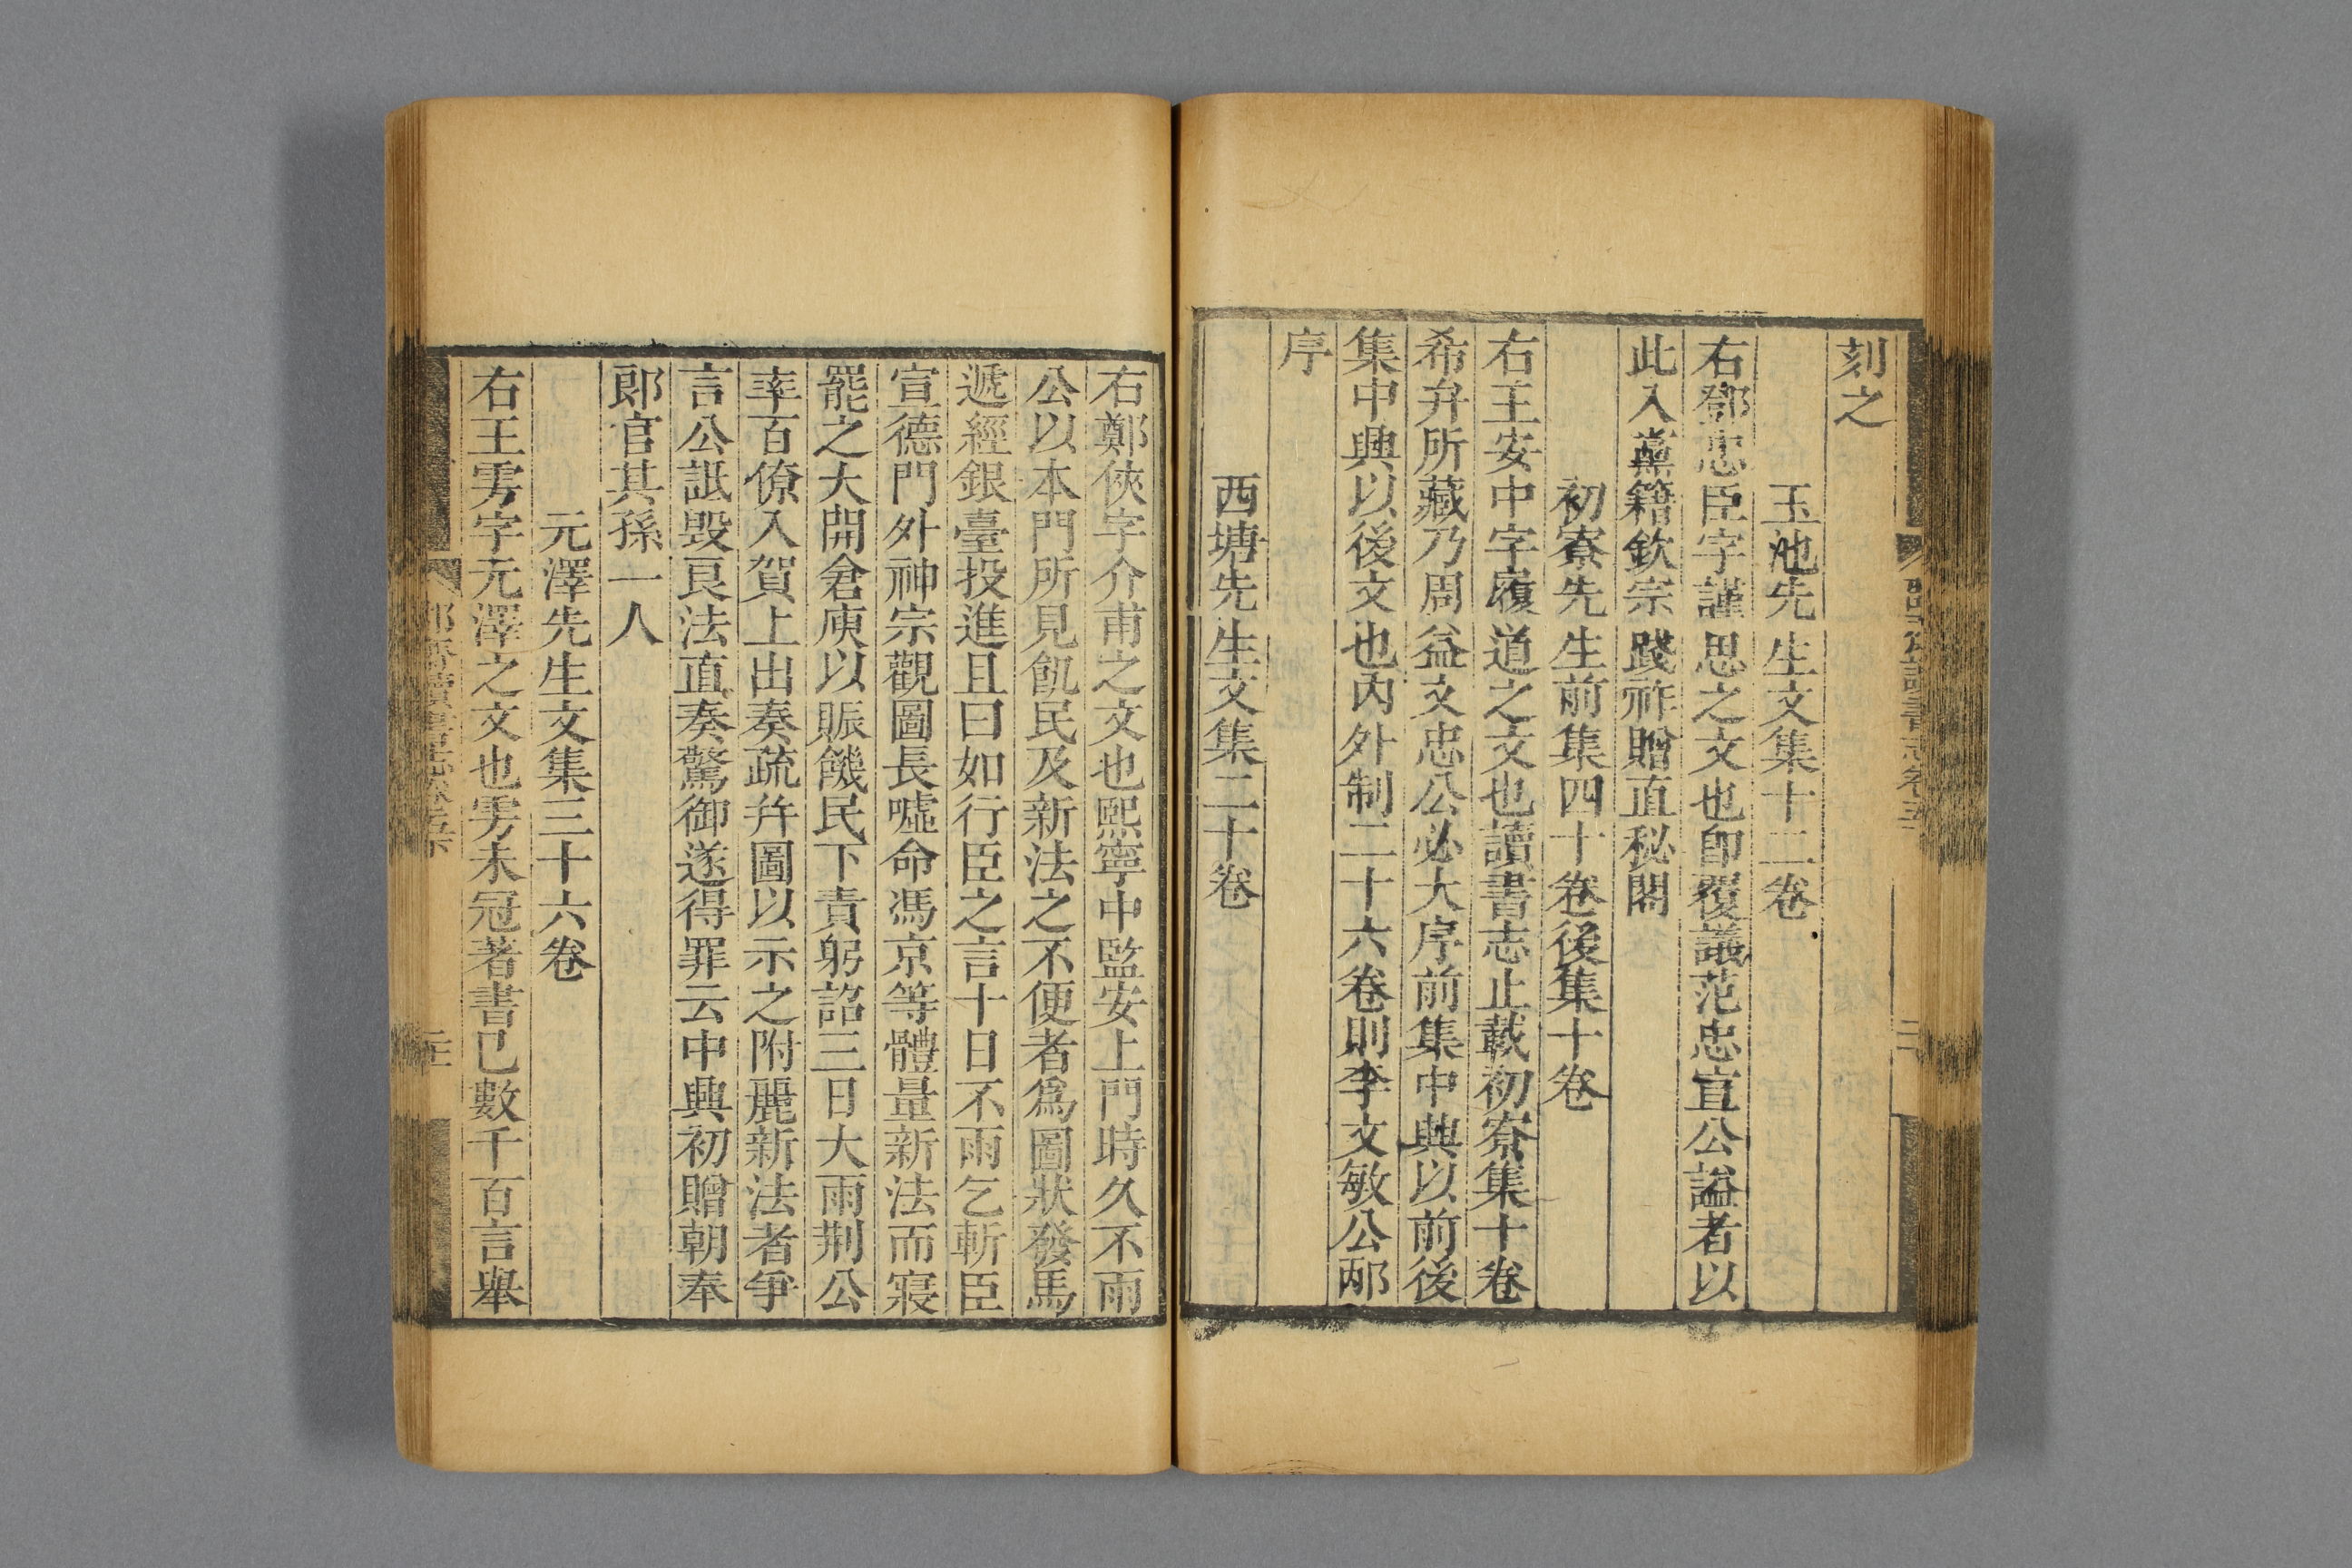 刻之
玉池先生文集十二卷
右鄧忠臣字謹思之文也卽覆議范忠宣公謚者以
此入黨籍欽宗踐祚贈直秘閣
初寮先生前集四十卷後集十卷
右王安中字履道之文也讀書志止載初寮集十卷
希弁所藏乃周益文忠公必大序前集中興以前後
集中興以後文也內外制二十六卷則李文敏公邴
序
西塘先生文集二十卷
右鄭俠字介甫之文也熙寧中監安上門時久不雨
公以本門所見飢民及新法之不便者爲圖狀發馬
遞經銀臺投進且曰如行臣之言十日不雨乞斬臣
宣德門外神宗觀圖長噓命馮京等體量新法而寢
罷之大開倉庾以賑饑民下責躬詔三日大雨荆公
率百僚入賀上出奏疏幷圖以示之附麗新法者爭
言公詆毀良法直奏驚御遂得罪云中興初贈朝奉
郎官其孫一人
元澤先生文集三十六卷
右王雱字元澤之文也雱未冠著書已數千百言舉